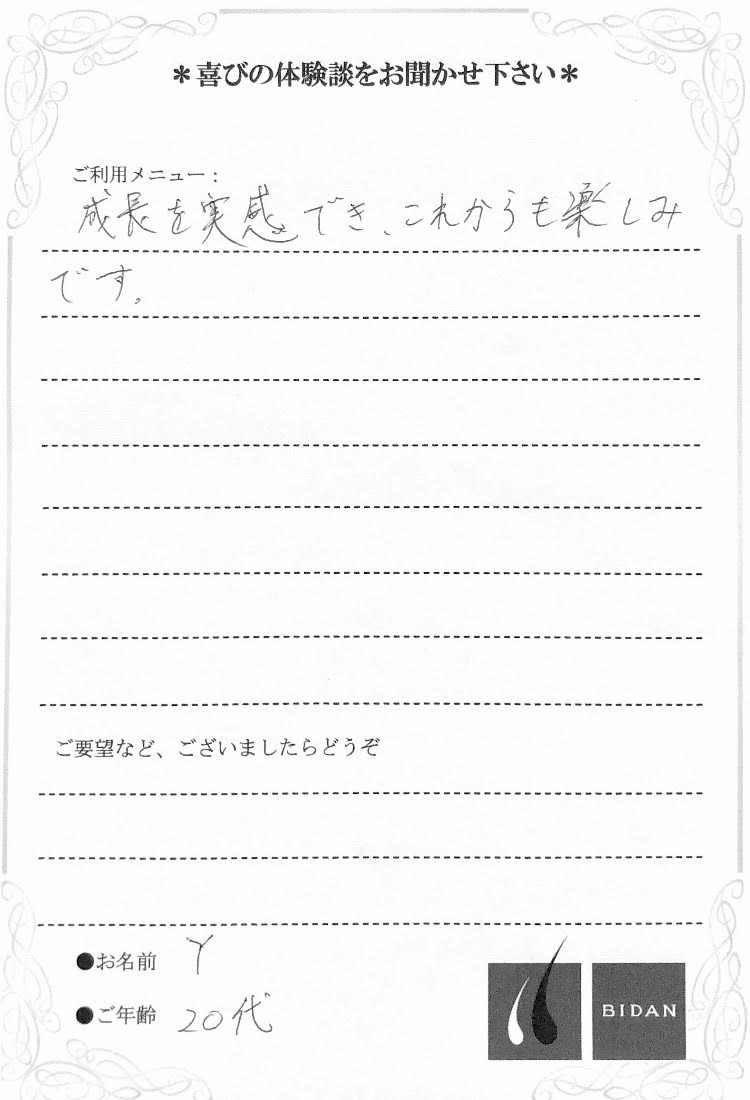 ＊喜びの体験談をお聞かせ下さい＊
ご利用メニュー：
成長を実感でき、これからも楽しみ
です。
ご要望など、ございましたらどうぞ
●お名前 Y
●ご年齢 20代
BIDAN